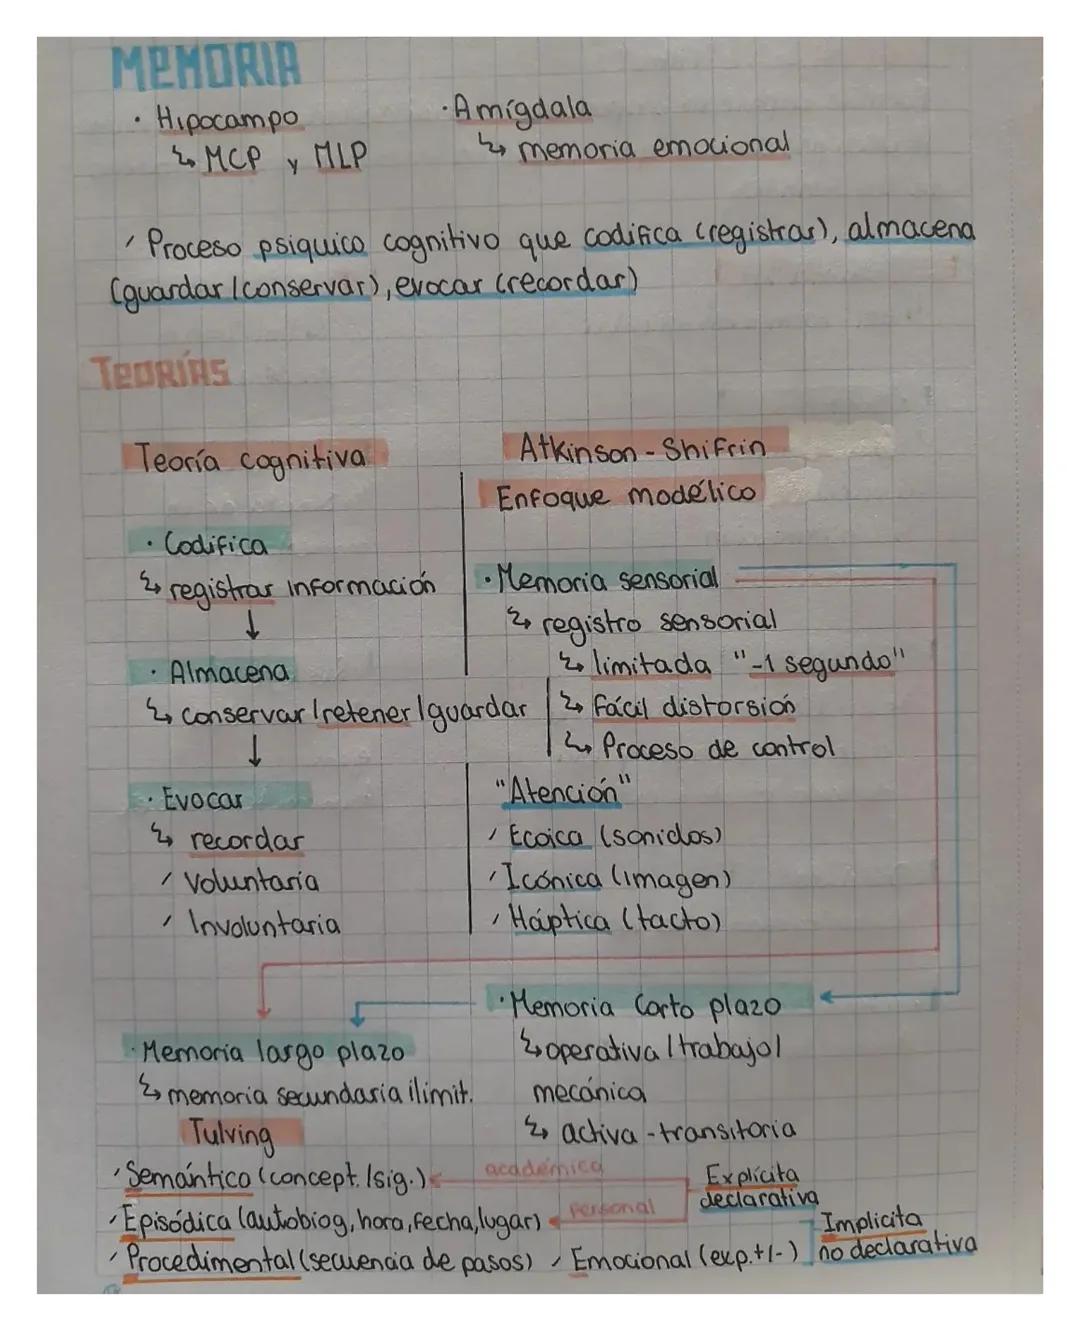 MEMORIA
· Hipocampo
↳ MCP y MLP
· Amígdala
↳ memoria emocional
✓ Proceso psiquico cognitivo que codifica (registrar), almacena
(guardar/conservar), evocar (recordar)
TEORÍAS
Teoría cognitiva
· Codifica
↳ registrar información
↓
· Almacena
↳ conservar/retener/guardar
↓
· Evocar
↳ recordar
✓ Voluntaria
✓ Involuntaria
Atkinson - Shifrin
Enfoque modélico
· Memoria sensorial
↳ registro sensorial
↳ limitada "-1 segundo"
↳ fácil distorsión
↳ Proceso de control
"Atención"
✓ Ecoica (sonidos)
✓ Icónica (imagen)
✓ Háptica (tacto)
· Memoria Corto plazo
↳ operativa/trabajo/
mecánica
↳ activa - transitoria
· Memoria largo plazo
↳ memoria secundaria ilimit.
Tulving
✓ Semántico (concept./sig.) académica
✓ Episódica (autobiog, hora, fecha, lugar) personal
Explícita
declarativa
✓ Procedimental (secuencia de pasos) ✓ Emocional (exp.+/-)
Implicita
no declarativa